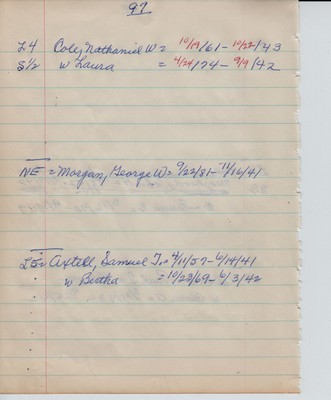 97
L4 Cole, Nathaniel W = 10/19/61 - 10/22/43
S½ w Laura = 4/24/74 - 9/9/42
NE = Morgan, George W = 9/22/81 - 11/16/41
Axtell, Samuel T. = 4/11/57 - 6/14/41
w Bertha = 10/23/69 - 6/3/42